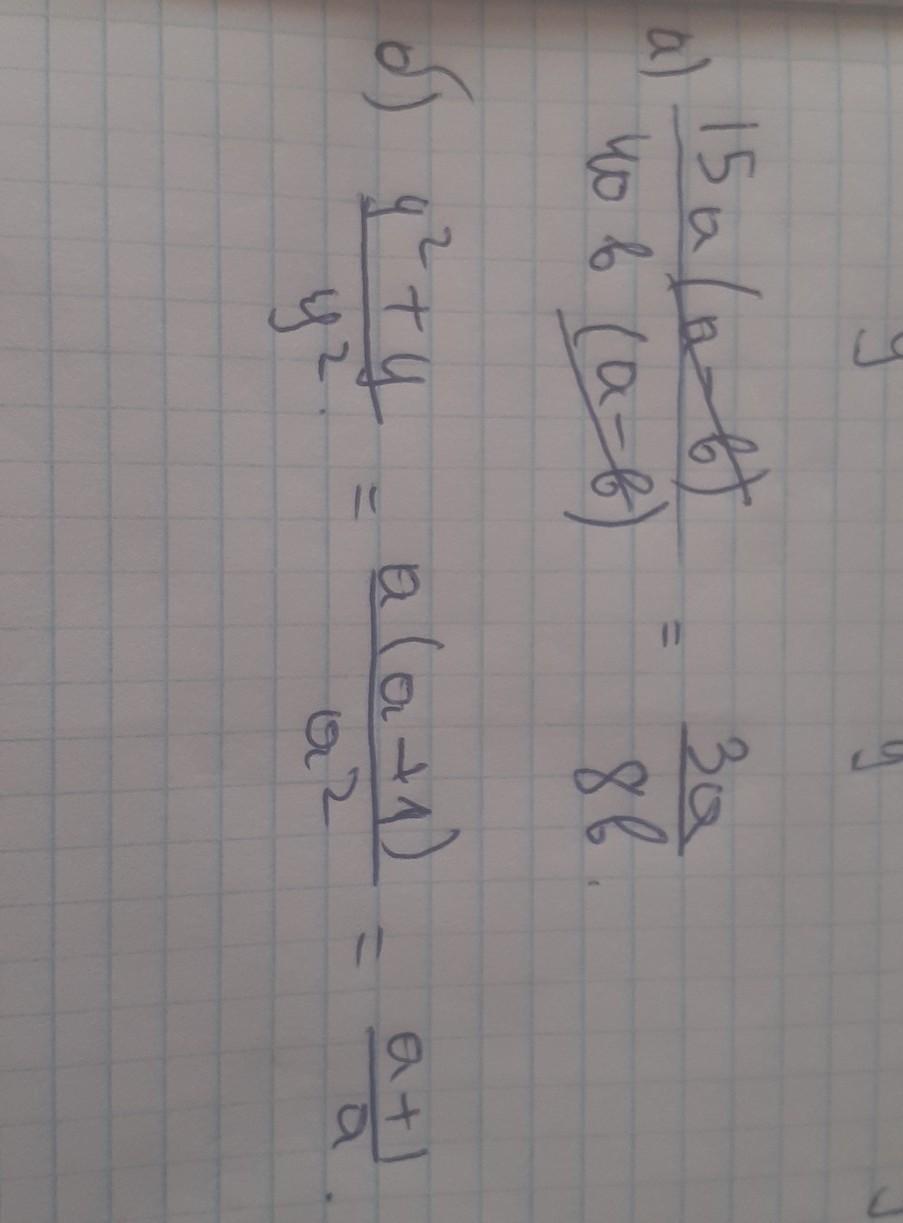 а) 15a(a-b)/40b(a-b) = 3a/8b.
б) y²+y/y². = a(a+1)/a² = a+1/a.